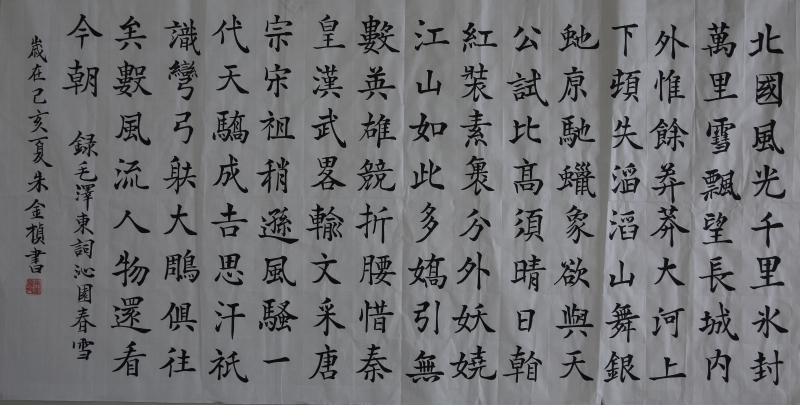 北國風光千里氷封
萬里雪飄望長城内
外惟餘莽莽大河上
下頓失滔滔山舞銀
虵原馳蠟象欲與天
公試比髙須晴日看
紅裝素裹分外妖嬈
江山如此多嬌引無
數英雄競折腰惜秦
皇漢武畧輸文采唐
宗宋祖稍遜風騷一
代天驕成吉思汗祇
識彎弓䠶大鵰俱往
矣數風流人物還看
今朝 録毛澤東詞沁園春雪
歲在己亥夏朱金楨書